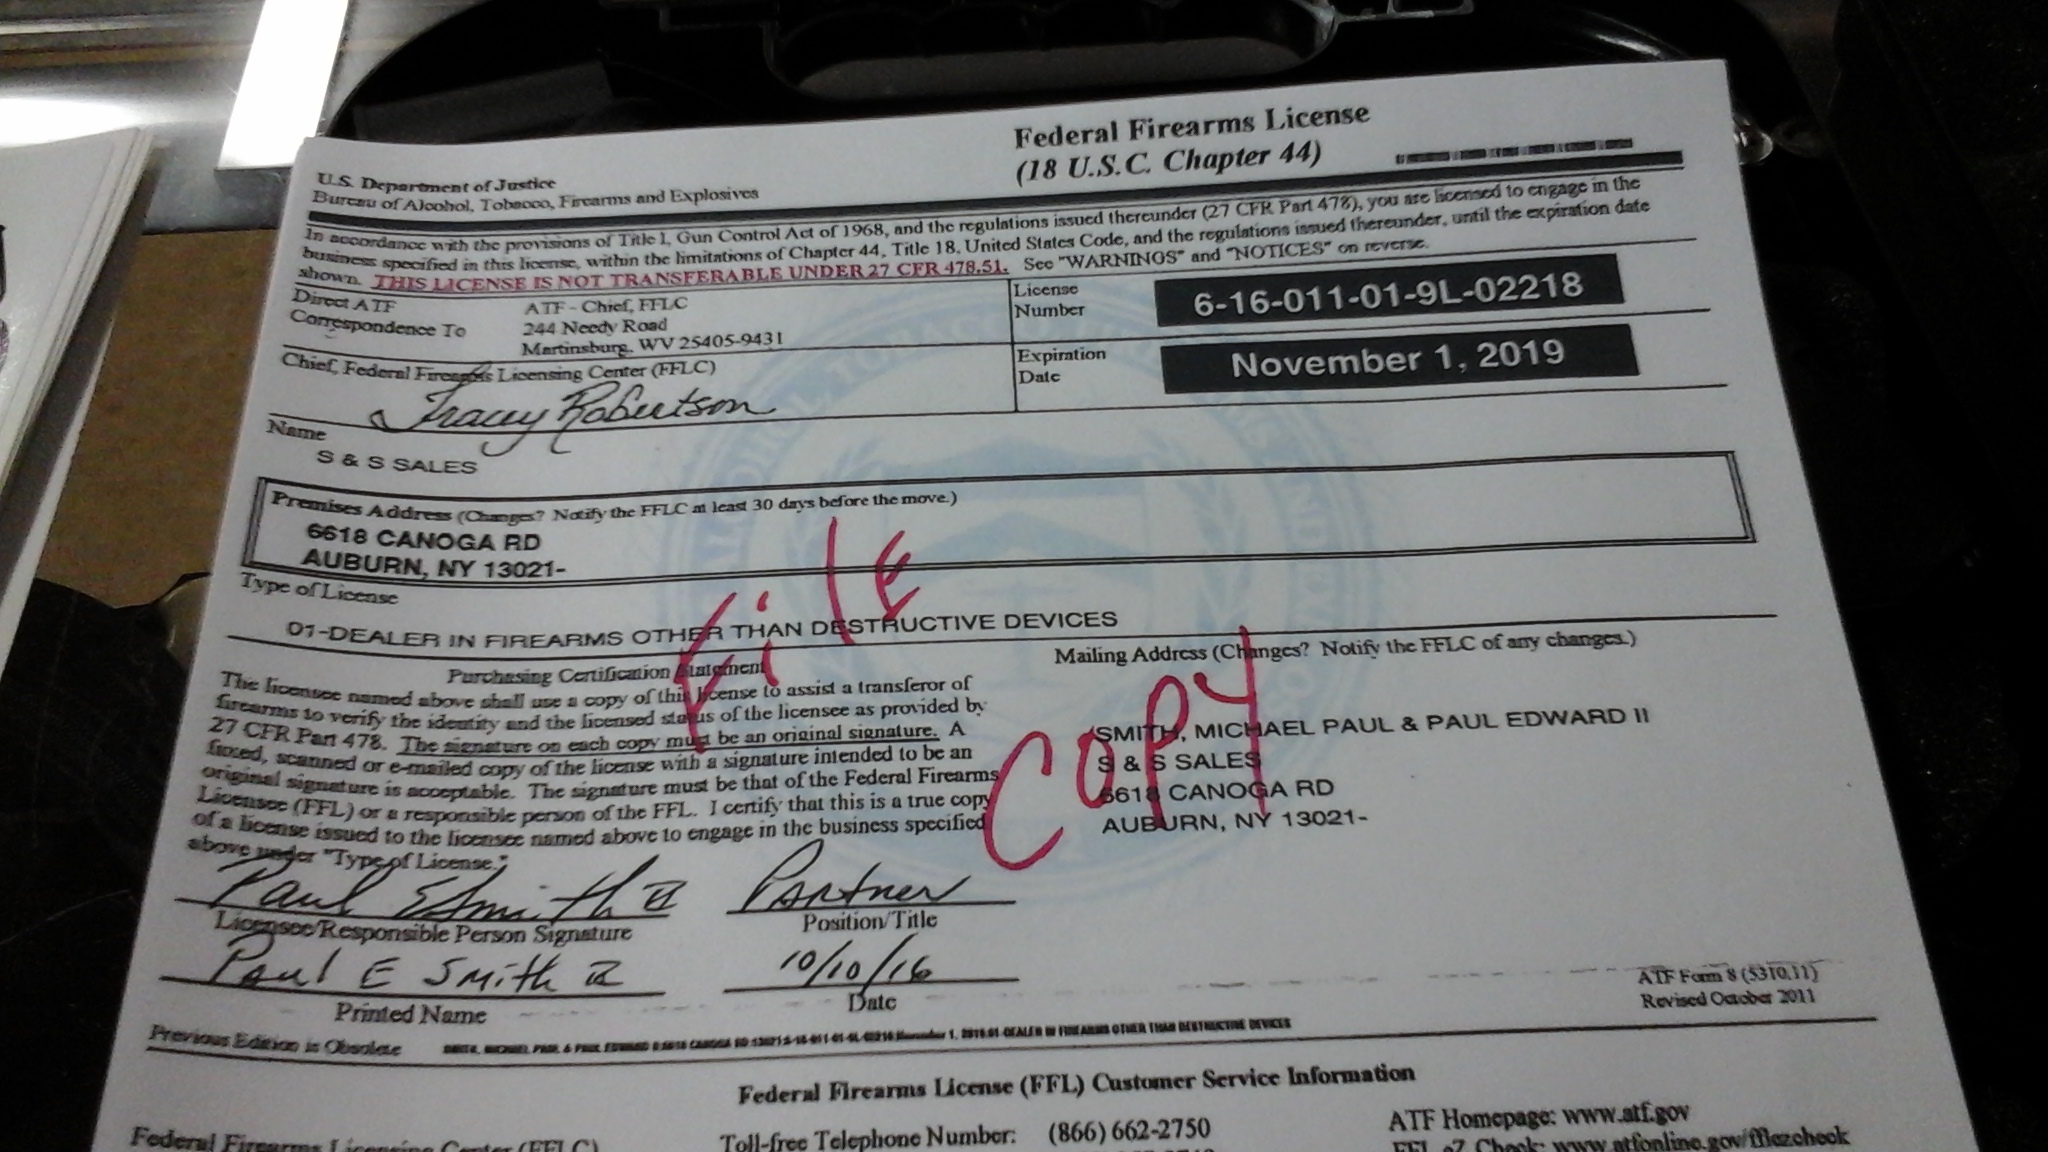 Federal Firearms License
(18 U.S.C. Chapter 44)
U.S. Department of Justice
Bureau of Alcohol, Tobacco, Firearms and Explosives
In accordance with the provisions of Title I, Gun Control Act of 1968, and the regulations issued thereunder (27 CFR Part 478), you are licensed to engage in the
business specified in this license, within the limitations of Chapter 44, Title 18, United States Code, and the regulations issued thereunder, until the expiration date
shown. THIS LICENSE IS NOT TRANSFERABLE UNDER 27 CFR 478.51. See "WARNINGS" and "NOTICES" on reverse.
Direct ATF
Correspondence To
ATF - Chief, FFLC
244 Needy Road
Martinsburg, WV 25405-9431
License
Number
6-16-011-01-9L-02218
Chief, Federal Firearms Licensing Center (FFLC)
Tracey Robertson
Expiration
Date
November 1, 2019
Name
S & S SALES
Premises Address (Changes? Notify the FFLC at least 30 days before the move.)
6618 CANOGA RD
AUBURN, NY 13021-
Type of License
01-DEALER IN FIREARMS OTHER THAN DESTRUCTIVE DEVICES
FilE
COPY
Purchasing Certification Statement
The licensee named above shall use a copy of this license to assist a transferor of
firearms to verify the identity and the licensed status of the licensee as provided by
27 CFR Part 478. The signature on each copy must be an original signature. A
faxed, scanned or e-mailed copy of the license with a signature intended to be an
original signature is acceptable. The signature must be that of the Federal Firearms
Licensee (FFL) or a responsible person of the FFL. I certify that this is a true copy
of a license issued to the licensee named above to engage in the business specified
above under "Type of License."
Mailing Address (Changes? Notify the FFLC of any changes.)
SMITH, MICHAEL PAUL & PAUL EDWARD II
S & S SALES
6618 CANOGA RD
AUBURN, NY 13021-
Paul E Smith II
Licensee/Responsible Person Signature
Partner
Position/Title
Paul E Smith II
Printed Name
10/10/16
Date
ATF Form 8 (5310.11)
Revised October 2011
Previous Edition is Obsolete
SMITH, MICHAEL PAUL & PAUL EDWARD II:6618 CANOGA RD:13021:6-16-011-01-9L-02218:November 1, 2019:01-DEALER IN FIREARMS OTHER THAN DESTRUCTIVE DEVICES
Federal Firearms License (FFL) Customer Service Information
Federal Firearms Licensing Center (FFLC)
Toll-free Telephone Number: (866) 662-2750
ATF Homepage: www.atf.gov
FFL eZ Check: www.atfonline.gov/fflezcheck